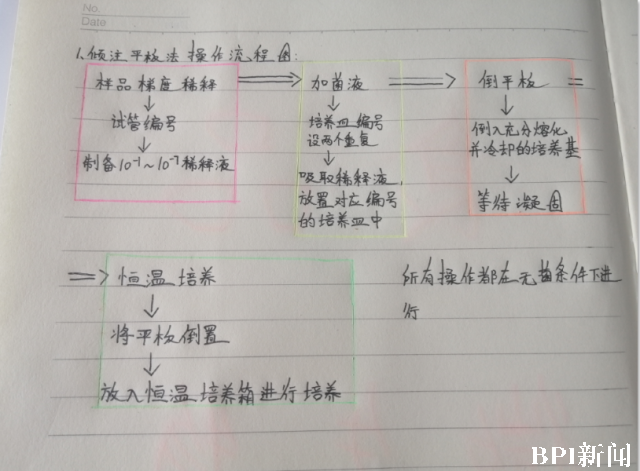 No.
Date
1、倾注平板法操作流程图:
样品梯度稀释 ⟹ 加菌液 ⟹ 倒平板 =
↓ ↓ ↓
试管编号 培养皿编号 倒入充分熔化
设两个重复 并冷却的培养基
↓ ↓ ↓
制备10⁻¹~10⁻⁷稀释液 吸取稀释液, 等待凝固
放置对应编号
的培养皿中
⟹ 恒温培养 所有操作都在无菌条件下进
↓ 行
将平板倒置
↓
放入恒温培养箱进行培养
BPI新闻